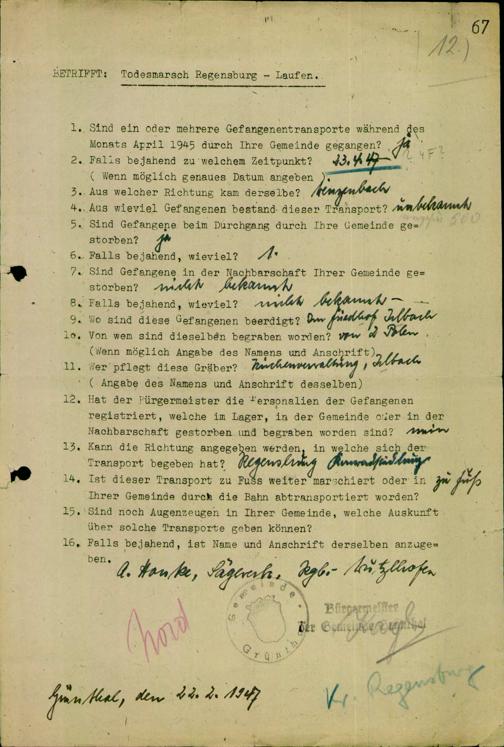 67
12.)
BETRIFFT: Todesmarsch Regensburg - Laufen.
1. Sind ein oder mehrere Gefangenentransporte während des
Monats April 1945 durch Ihre Gemeinde gegangen? ja
2. Falls bejahend zu welchem Zeitpunkt? 23.4.47
( Wenn möglich genaues Datum angeben )
3. Aus welcher Richtung kam derselbe? Wenzenbach
4. Aus wieviel Gefangenen bestand dieser Transport? unbekannt
500
5. Sind Gefangene beim Durchgang durch Ihre Gemeinde ge=
storben? ja
6. Falls bejahend, wieviel? 1.
7. Sind Gefangene in der Nachbarschaft Ihrer Gemeinde ge=
storben? nicht bekannt
8. Falls bejahend, wieviel? nicht bekannt -
9. Wo sind diese Gefangenen beerdigt? Im Friedhof Irlbach
10. Von wem sind dieselben begraben worden? von 2 Polen
(Wenn möglich Angabe des Namens und Anschrift)
11. Wer pflegt diese Gräber? Kirchenverwaltung, Irlbach
( Angabe des Namens und Anschrift desselben)
12. Hat der Bürgermeister die Personalien der Gefangenen
registriert, welche im Lager, in der Gemeinde oder in der
Nachbarschaft gestorben und begraben worden sind? nein
13. Kann die Richtung angegeben werden, in welche sich der
Transport begeben hat? Regensburg Konradsiedlung
14. Ist dieser Transport zu Fuss weiter marschiert oder in zu Fuß
Ihrer Gemeinde durch die Bahn abtransportiert worden?
15. Sind noch Augenzeugen in Ihrer Gemeinde, welche Auskunft
über solche Transporte geben können?
16. Falls bejahend, ist Name und Anschrift derselben anzuge=
ben.
A. Sägewerk, Rgb.- Wutzlhofen
Gemeinde
Grünthal
Bürgermeister
der Gemeinde Grünthal
Nord
Grünthal, den 22.2.1947
Kr. Regensburg